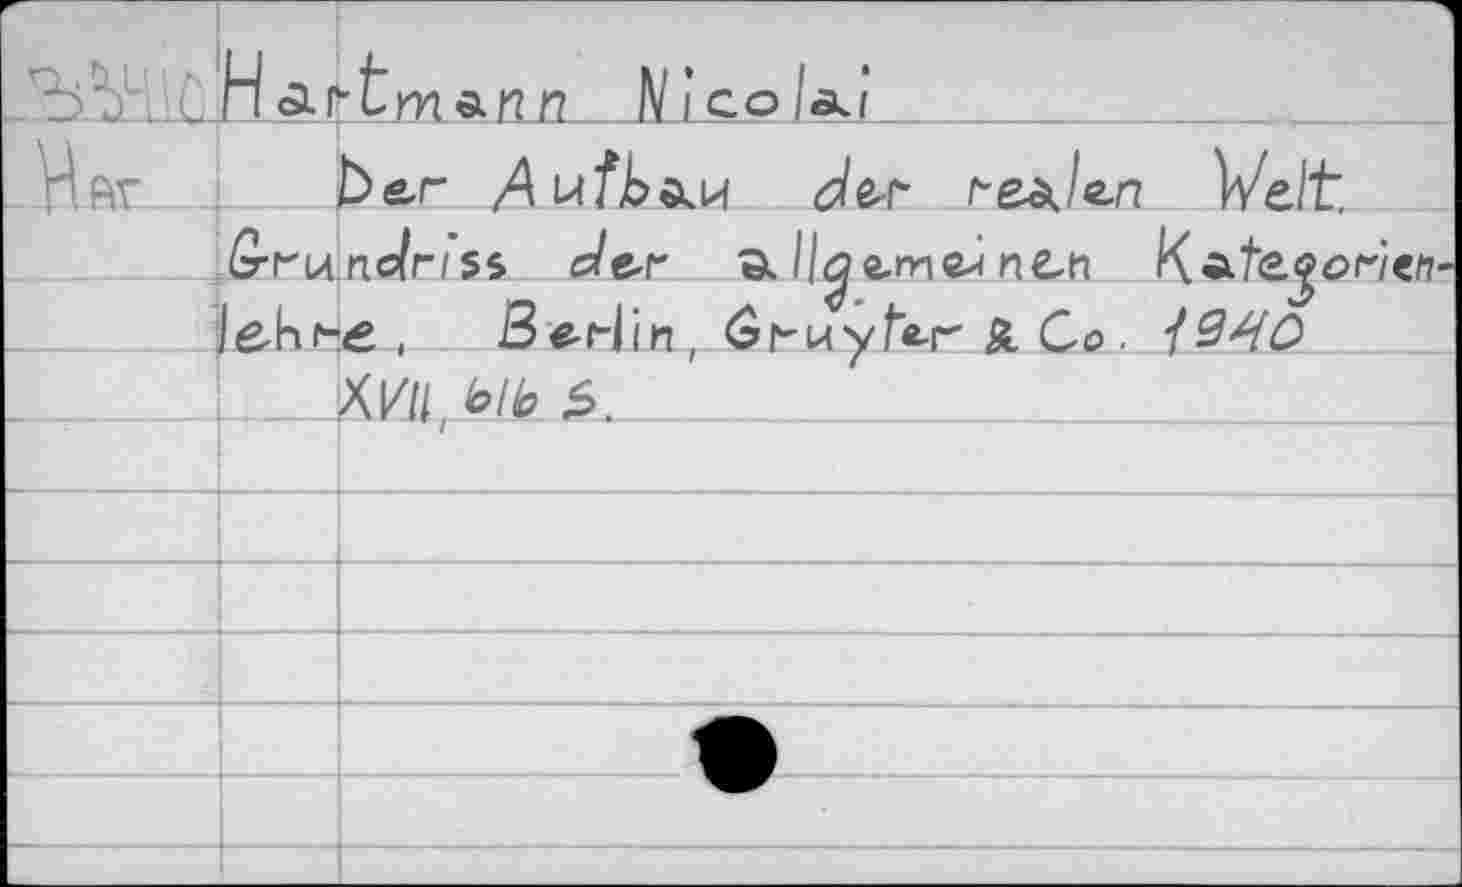 Hartmann Nicolai
Har Der Aufbau der realen Welt.
Grundriss der allgemeinen Kategorien-
lehre, Berlin, Gruyter & Co. 1940
XVII, 616 S.